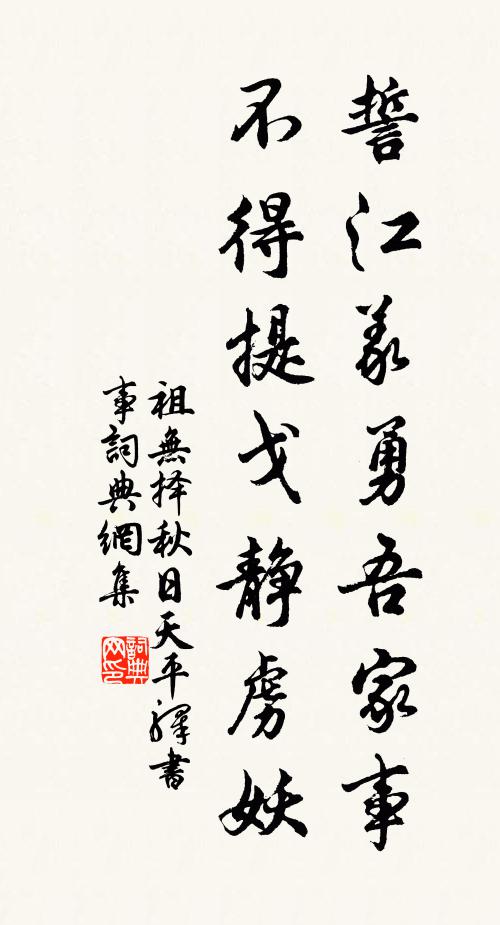 誓江義勇吾家事
不得提戈静虜妖
祖無择秋日天平驛書
事詞典網集
詞典网印